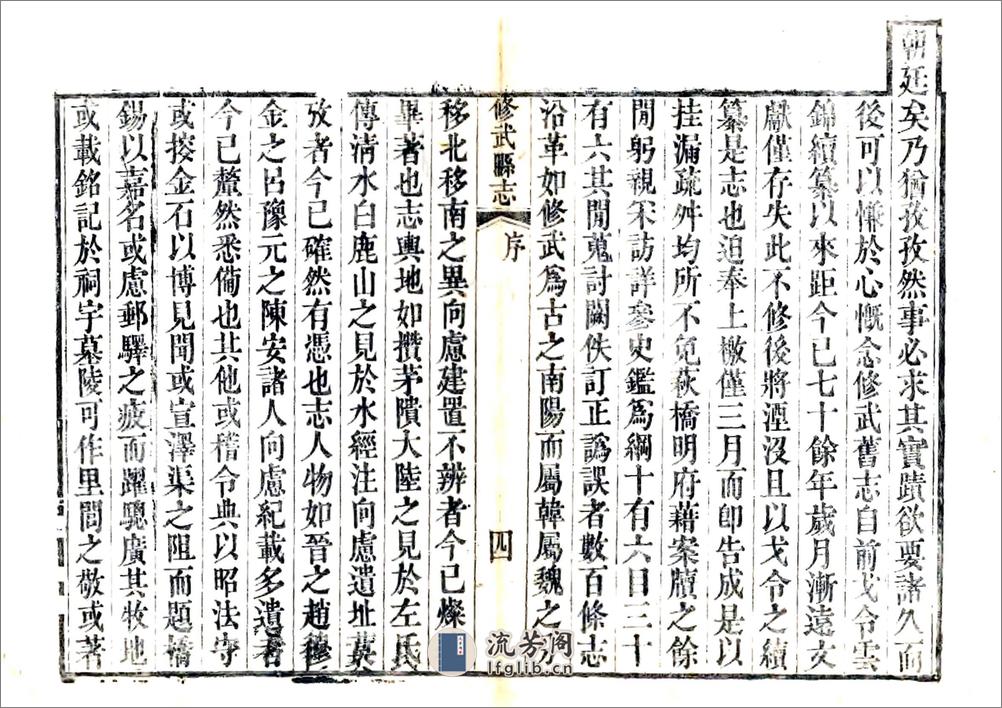 朝廷矣乃猶孜孜然事必求其實蹟欲要諸久而
後可以慊於心慨念修武舊志自前戈令雲
錦續纂以來距今已七十餘年歲月漸遠文
獻僅存失此不修後將湮沒且以戈令之續
纂是志也迫奉上檄僅三月而卽告成是以
挂漏疏舛均所不免荻橋明府藉案牘之餘
閒躬親釆訪詳參史鑑爲綱十有六目三十
有六其閒蒐討闕佚訂正譌誤者數百條志
沿革如修武爲古之南陽而屬韓屬魏之
修武縣志
序
四
移北移南之異向慮建置不辨者今已燦
畢著也志輿地如攢茅隤大陸之見於左氏
傳淸水白鹿山之見於水經注向慮遺址莫
攷者今已確然有憑也志人物如晉之趙穆
金之呂豫元之陳安諸人向慮紀載多遺者
今已釐然悉備也其他或稽令典以昭法守
或搜金石以博見聞或宣澤渠之阻而題橋
錫以嘉名或慮郵驛之疲而躍驄廣其牧地
或載銘記於祠宇墓陵可作里閭之敬或著
流芳阁
lfglib.cn